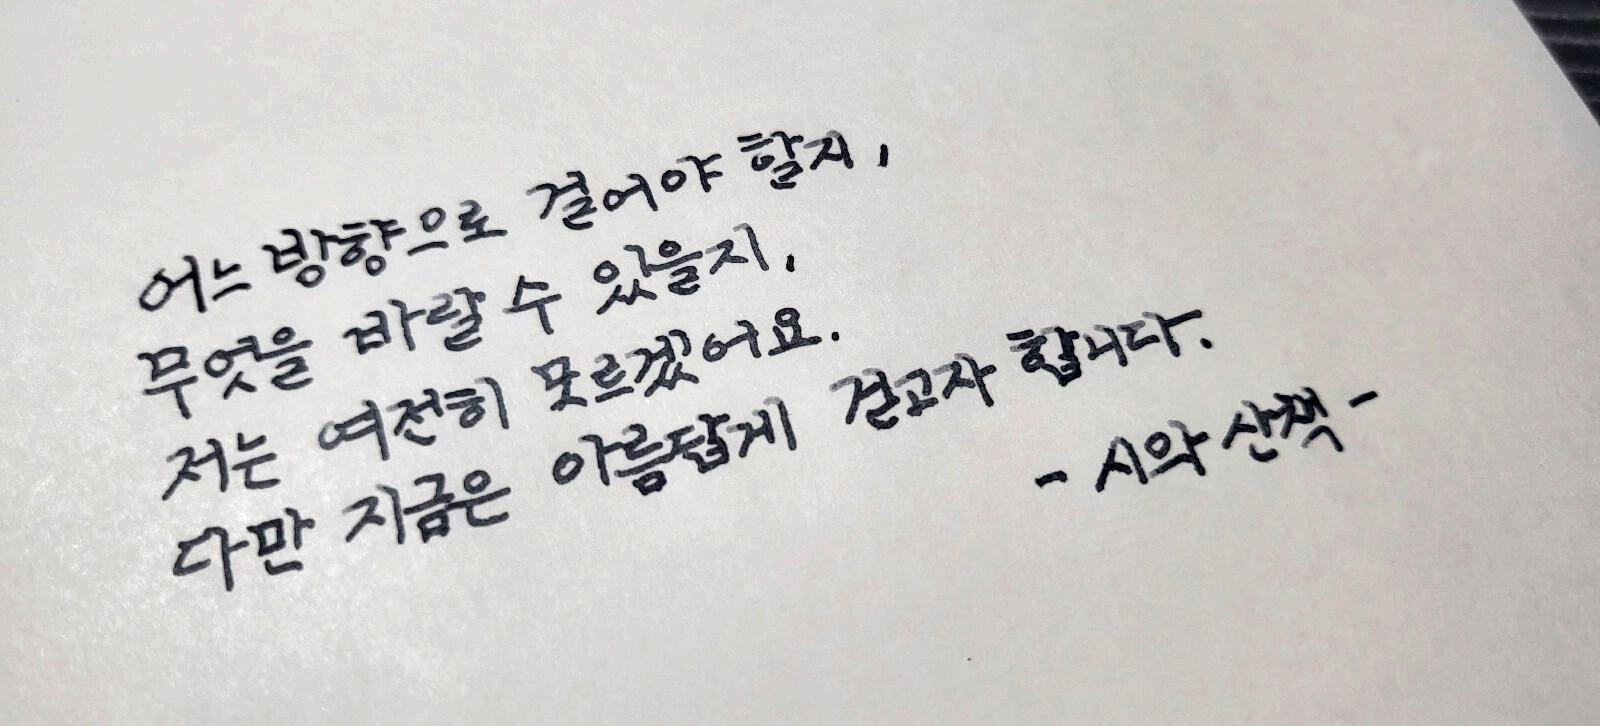 어느 방향으로 걸어야 할지,
무엇을 바랄 수 있을지,
저는 여전히 모르겠어요.
다만 지금은 아름답게 걷고자 합니다.
- 시와 산책 -